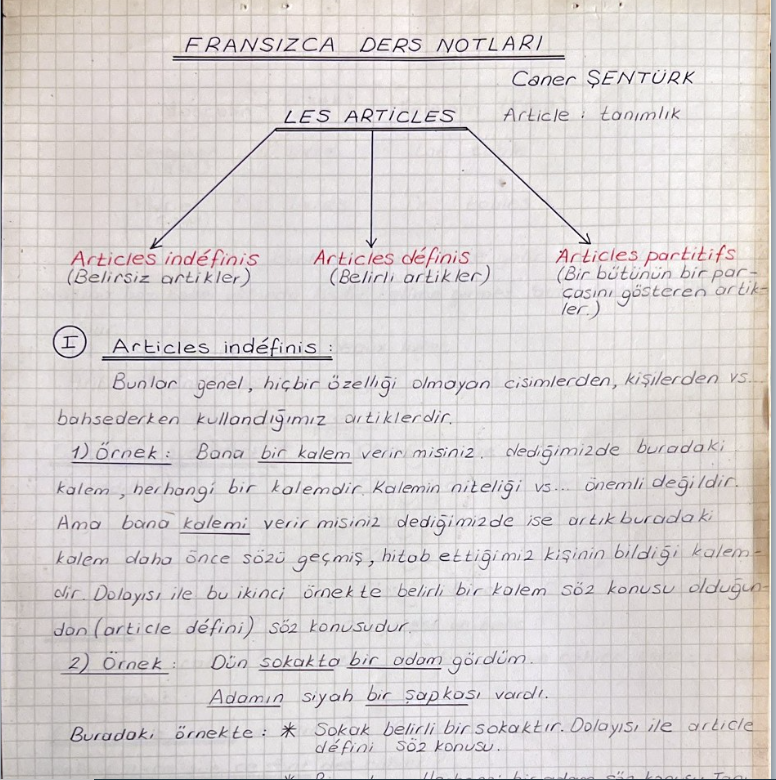 FRANSIZCA DERS NOTLARI
Caner ŞENTÜRK
LES ARTİCLES Article : tanımlık
Articles indéfinis
(Belirsiz artikler)
Articles définis
(Belirli artikler)
Articles partitifs
(Bir bütünün bir par-
çasını gösteren artik-
ler.)
I Articles indéfinis :
Bunlar genel, hiçbir özelliği olmayan cisimlerden, kişilerden vs...
bahsederken kullandığımız artiklerdir.
1) Örnek : Bana bir kalem verir misiniz. dediğimizde buradaki
kalem, herhangi bir kalemdir. Kalemin niteliği vs... önemli değildir.
Ama bana kalemi verir misiniz dediğimizde ise artık buradaki
kalem daha önce sözü geçmiş, hitab ettiğimiz kişinin bildiği kalem-
dir. Dolayısı ile bu ikinci örnekte belirli bir kalem söz konusu olduğun-
dan (article défini) söz konusudur.
2) Örnek : Dün sokakta bir adam gördüm.
Adamın siyah bir şapkası vardı.
Buradaki örnekte : * Sokak belirli bir sokaktır. Dolayısı ile article
défini söz konusu.